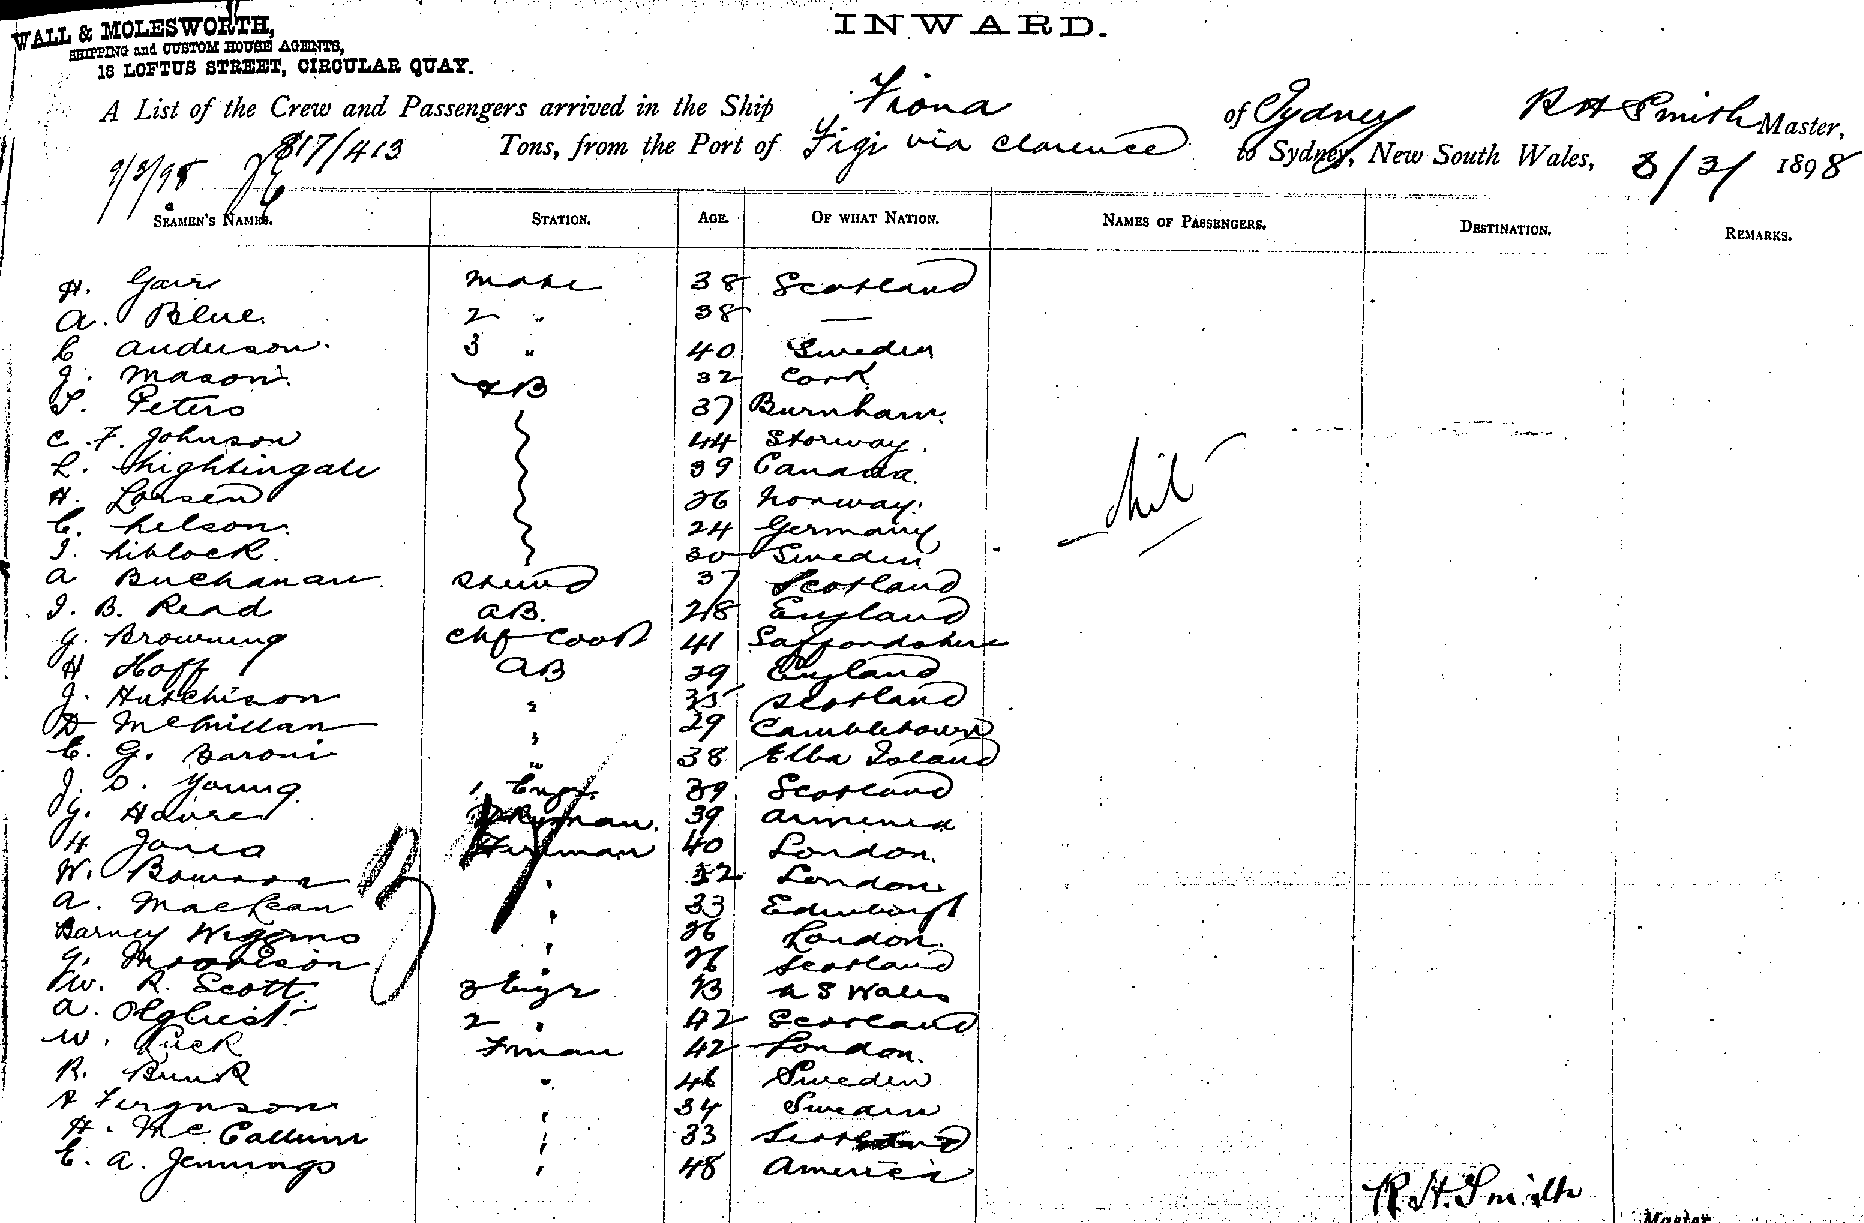 WALL & MOLESWORTH,
SHIPPING and CUSTOM HOUSE AGENTS,
18 LOFTUS STREET, CIRCULAR QUAY.
INWARD.
A List of the Crew and Passengers arrived in the Ship Fiona of Sydney R H Smith Master,
817/413 Tons, from the Port of Figi via Clarence to Sydney, New South Wales, 8/3/ 1898
9/3/98
SEAMEN'S NAMES. STATION. AGE. OF WHAT NATION. NAMES OF PASSENGERS. DESTINATION. REMARKS.
H. Gair Mate 38 Scotland
A. Blue 2 " 38 —
C Anderson 3 " 40 Sweden
J. Mason AB 32 Cork
T. Peters 37 Burnham
C. F. Johnson 44 Storway
L. Nightingale 39 Canada
H. Larsen 26 Norway
C. Nelson 24 Germany
J. Niblock 30 Sweden
nil
A Buchanan Steward 37 Scotland
J. B. Read AB. 28 England
G. Browning Chf Cook 41 Saffordshire
H Hoff AB 29 England
J. Hutchison " 35 Scotland
D McMillan " 29 Cambletown
C. G. Baroni " 38 Elba Island
J. D. Young 1 Engr. 39 Scotland
G. 39 Armenia
H Jones Fireman 40 London
W. " 32 London
A. MacLean " 33 Edinburgh
Barney Wiggins " 26 London
G. Morrison " 26 Scotland
W. R. Scott 3 Engr 23 N S Wales
A. 2 " 42 Scotland
W. Luck Fman 42 London
R. Bunk " 46 Sweden
A Ferguson " 34 Sweden
H. McCallum " 33 Scotland
E. A. Jennings " 48 America
R. H. Smith
Master